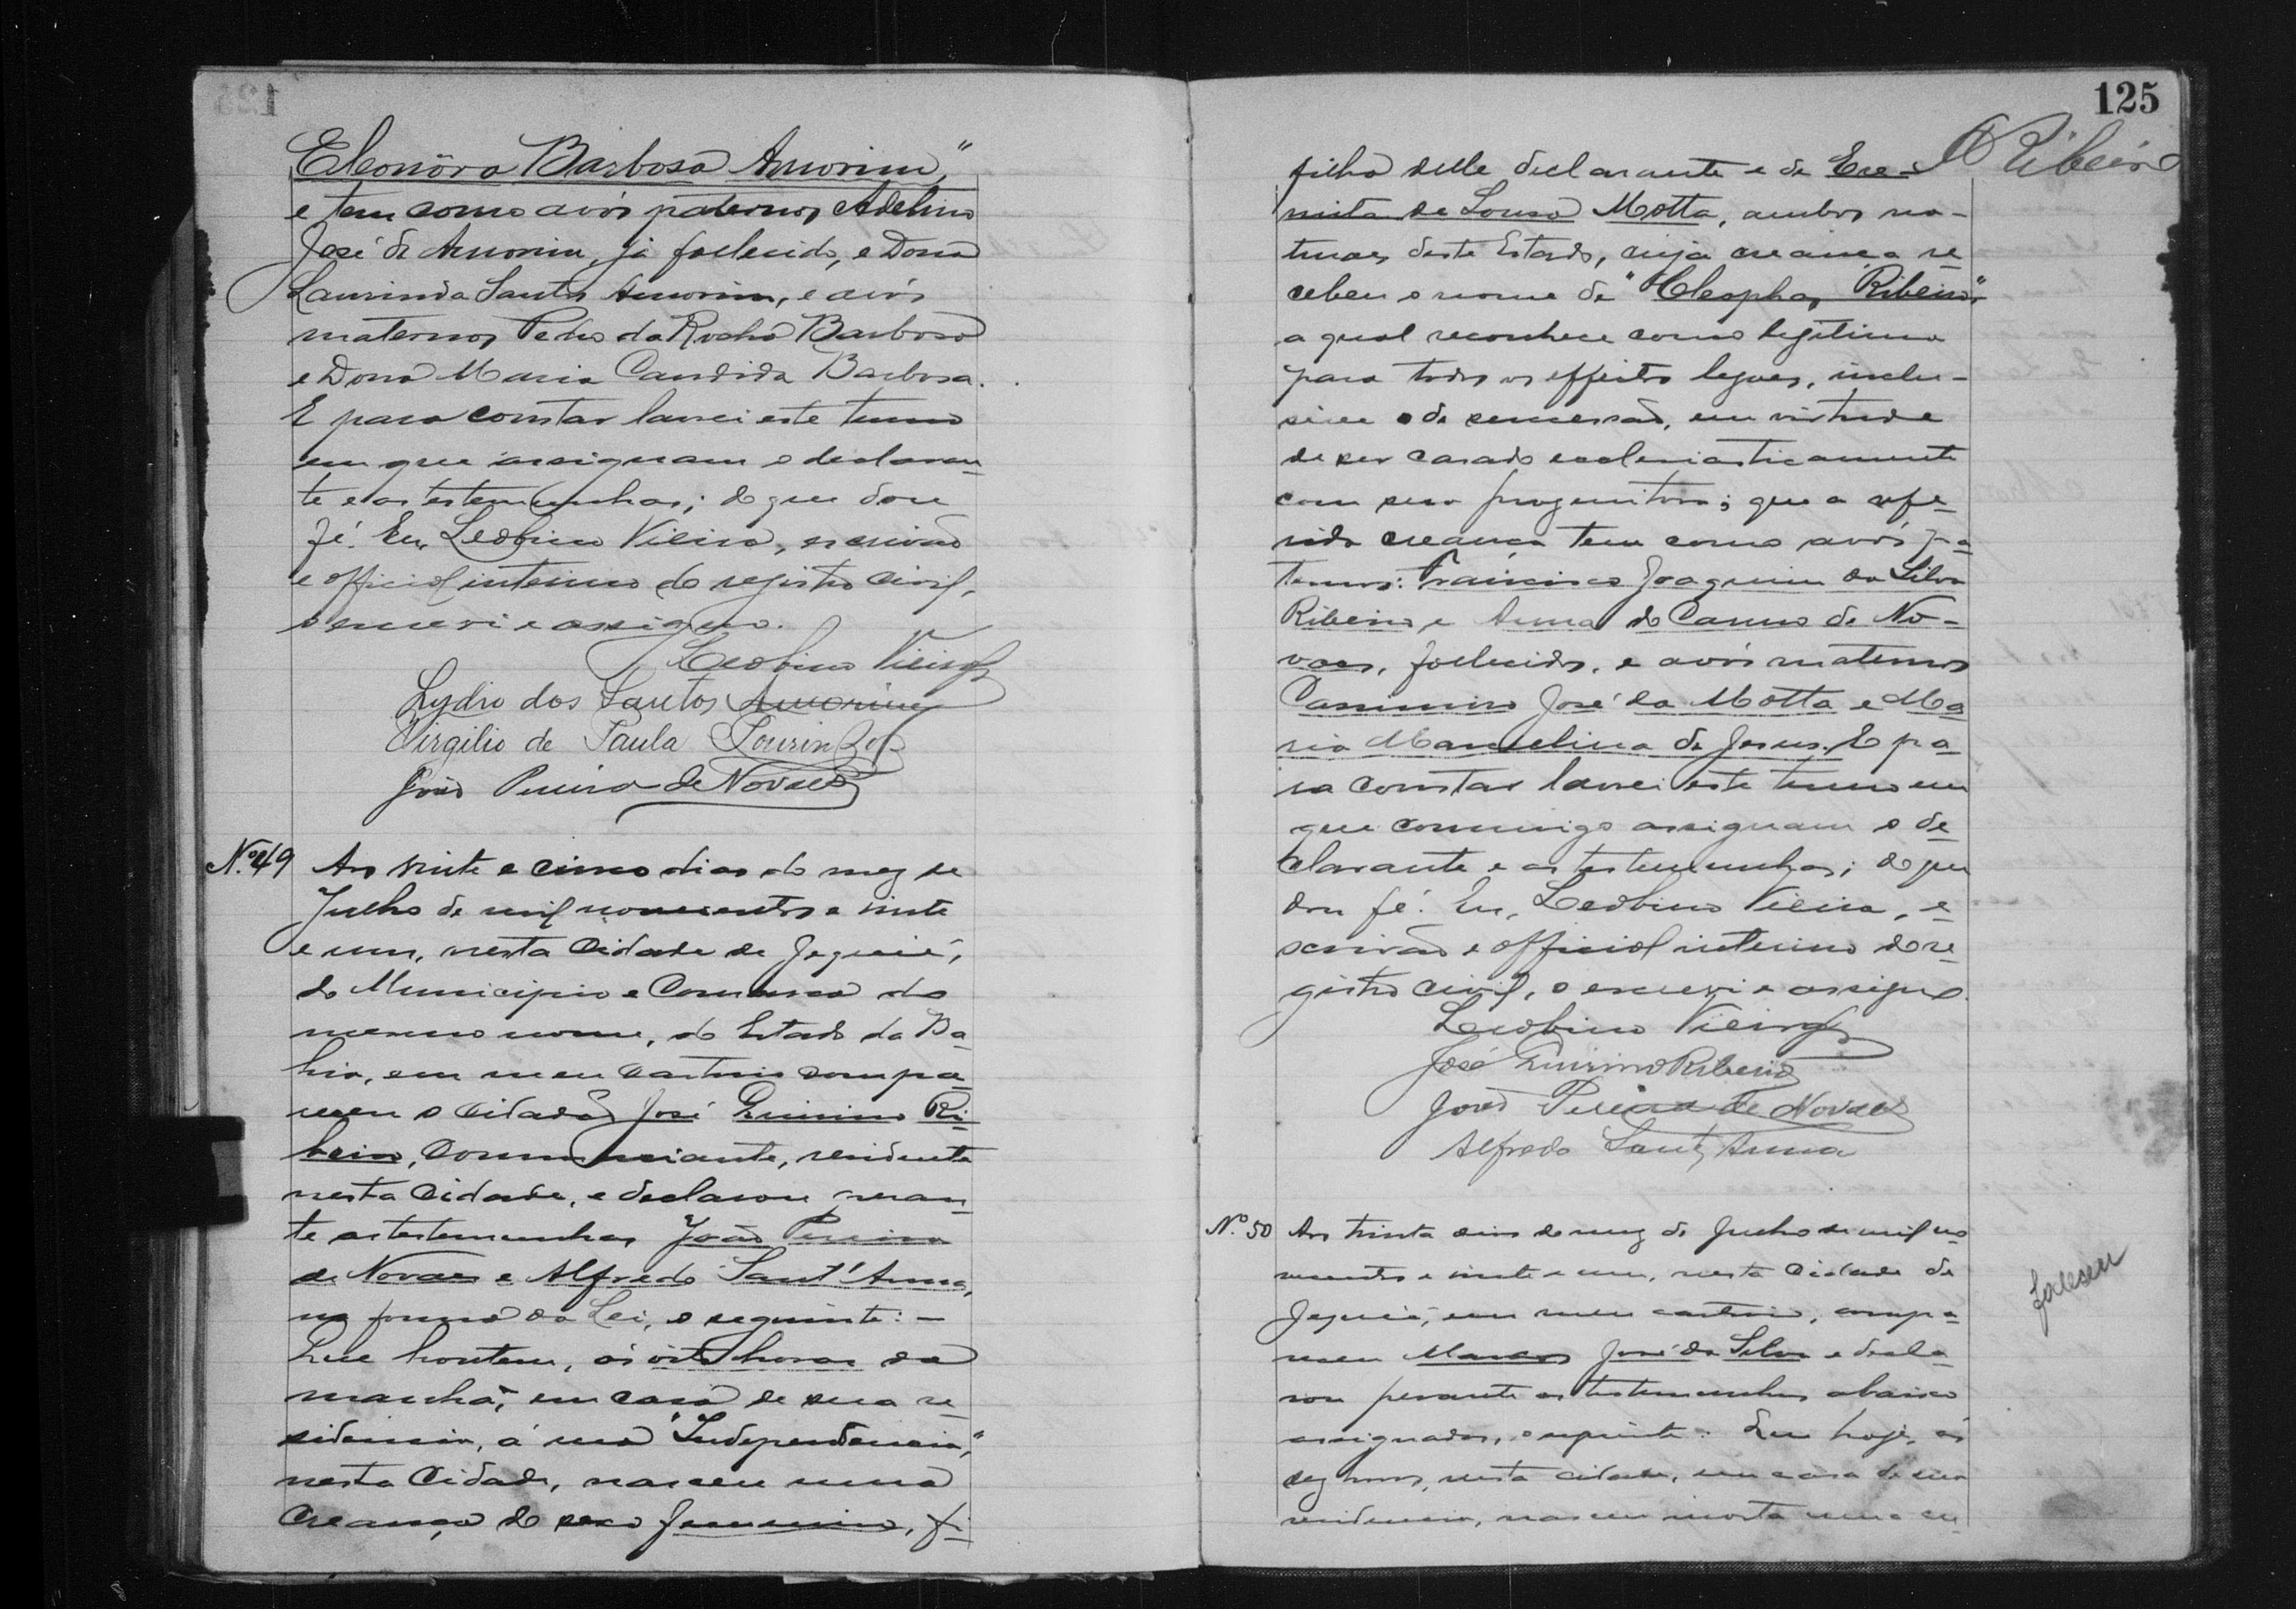 Eleonôra Barbosa Amorim,"
e tem como avós paternos Adelino
José de Amorim, já fallecido, e Dona
Laurinda Santos Amorim, e avós
maternos Pedro da Rocha Barbosa
e Dona Maria Candida Barbosa.
E para constar lavrei este termo
em que assignam o declaran-
te e as testemunhas; do que dou
fé. Eu, Leobino Vieira, escrivão
e official interino do registro civil,
o escrevi e assigno.
Leobino Vieira
Lydio dos Santos Amorim
Virgilio de Paula Tourinho
João Pereira de Novaes
Nº. 49 Aos vinte e cinco dias do mez de
Julho de mil novecentos e vinte
e um, nesta Cidade de Jequié,
do Municipio e Comarca do
mesmo nome, do Estado da Ba-
hia, em meu cartorio compa-
receu o cidadão José Quirino Ri-
beiro, commerciante, residente
nesta Cidade, e declarou peran-
te as testemunhas João Pereira
de Novaes e Alfredo Sant'Anna,
na forma da Lei, o seguinte: –
Que hontem, ás oito horas da
manhã, em casa de sua re-
sidencia, á rua "Independencia,"
nesta Cidade, nasceu uma
creança do sexo femenino, fi-
125
Ribeiro
filha delle declarante e de
nista de Sousa Motta, ambos na-
turaes deste Estado, cuja creança re-
cebeu o nome de "Cleophas Ribeiro",
a qual reconhece como legitima
para todos os effeitos legaes, inclu-
sive o de successão, em virtude
de ser casado ecclesiasticamente
com sua progenitora; que a refe-
rida creança tem como avós pa-
ternos: Francisco Joaquim da Silva
Ribeiro e Anna do Carmo de No-
vaes, fallecidos, e avós maternos
Cassimiro José da Motta e Ma-
ria Marcelina de Jesus. E pa-
ra constar lavrei este termo em
que commigo assignam o de-
clarante e as testemunhas; do que
dou fé. Eu, Leobino Vieira, e-
scrivão e official interino do re-
gistro civil, o escrevi e assigno.
Leobino Vieira
José Quirino Ribeiro
João Pereira de Novaes
Alfredo Sant'Anna
Nº. 50 Aos trinta dias do mez de Julho de mil no-
vecentos e vinte e um, nesta Cidade de
Jequié, em meu cartorio, compa-
receu José da Silva e decla-
rou perante as testemunhas abaixo
assignadas, o seguinte: Que hoje, ás
dez horas, nesta cidade, em casa de sua
residencia, nasceu morta uma cre-
faleceu